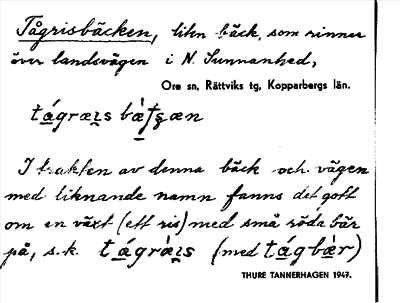 Tågrisbäcken, liten bäck, som rinner
över landsvägen i N. Sunnanhed,
Ore sn, Rättviks tg, Kopparbergs län.
I trakten av denna bäck och vägen
med liknande namn fanns det gott
om en växt (ett ris) med små röda bär
på, s.k. tågräıs (med tágbär)
THURE TANNERHAGEN 1947.